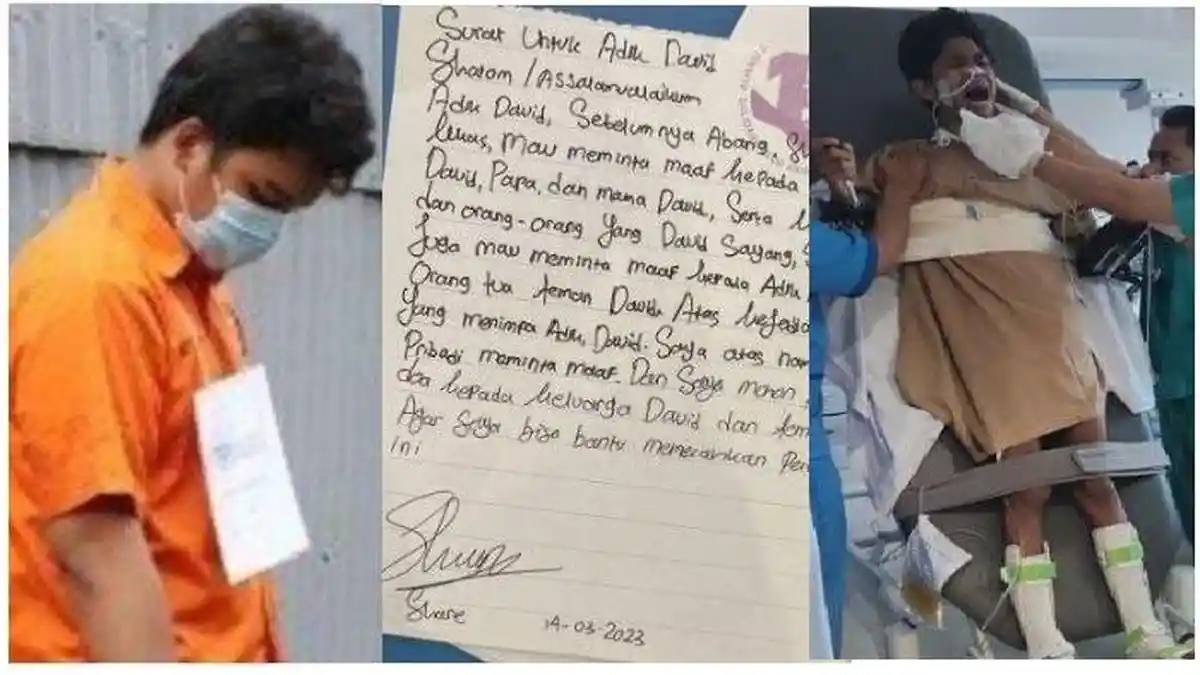 Surat Untuk Adik David
Shalom / Assalamualaikum
Adik David, Sebelumnya Abang,
lukas, Mau meminta maaf kepada
David, Papa, dan mama David, Serta
dan orang-orang Yang David Sayang,
Juga mau meminta maaf kepada Adik
Orang tua teman David. Atas
Yang menimpa Adik David. Saya atas
Pribadi meminta maaf. Dan Saya mohon
doa kepada keluarga David dan
Agar Saya bisa bantu memecahkan
Ini
Shane
14-03-2023